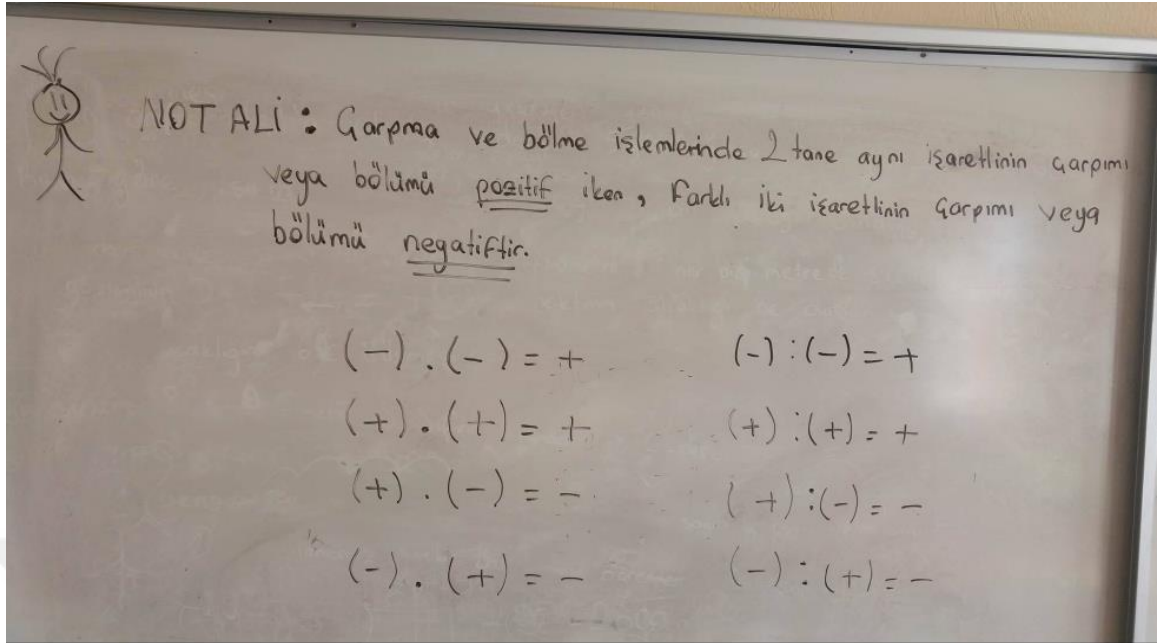 NOT ALİ : Çarpma ve bölme işlemlerinde 2 tane aynı işaretlinin çarpımı
veya bölümü pozitif iken, Farklı iki işaretlinin çarpımı veya
bölümü negatiftir.
(-) . (-) = + (-) : (-) = +
(+) . (+) = + (+) : (+) = +
(+) . (-) = - (+) : (-) = -
(-) . (+) = - (-) : (+) = -